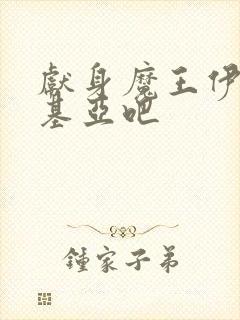 獻身魔王伊
基亞吧
鍾家子弟